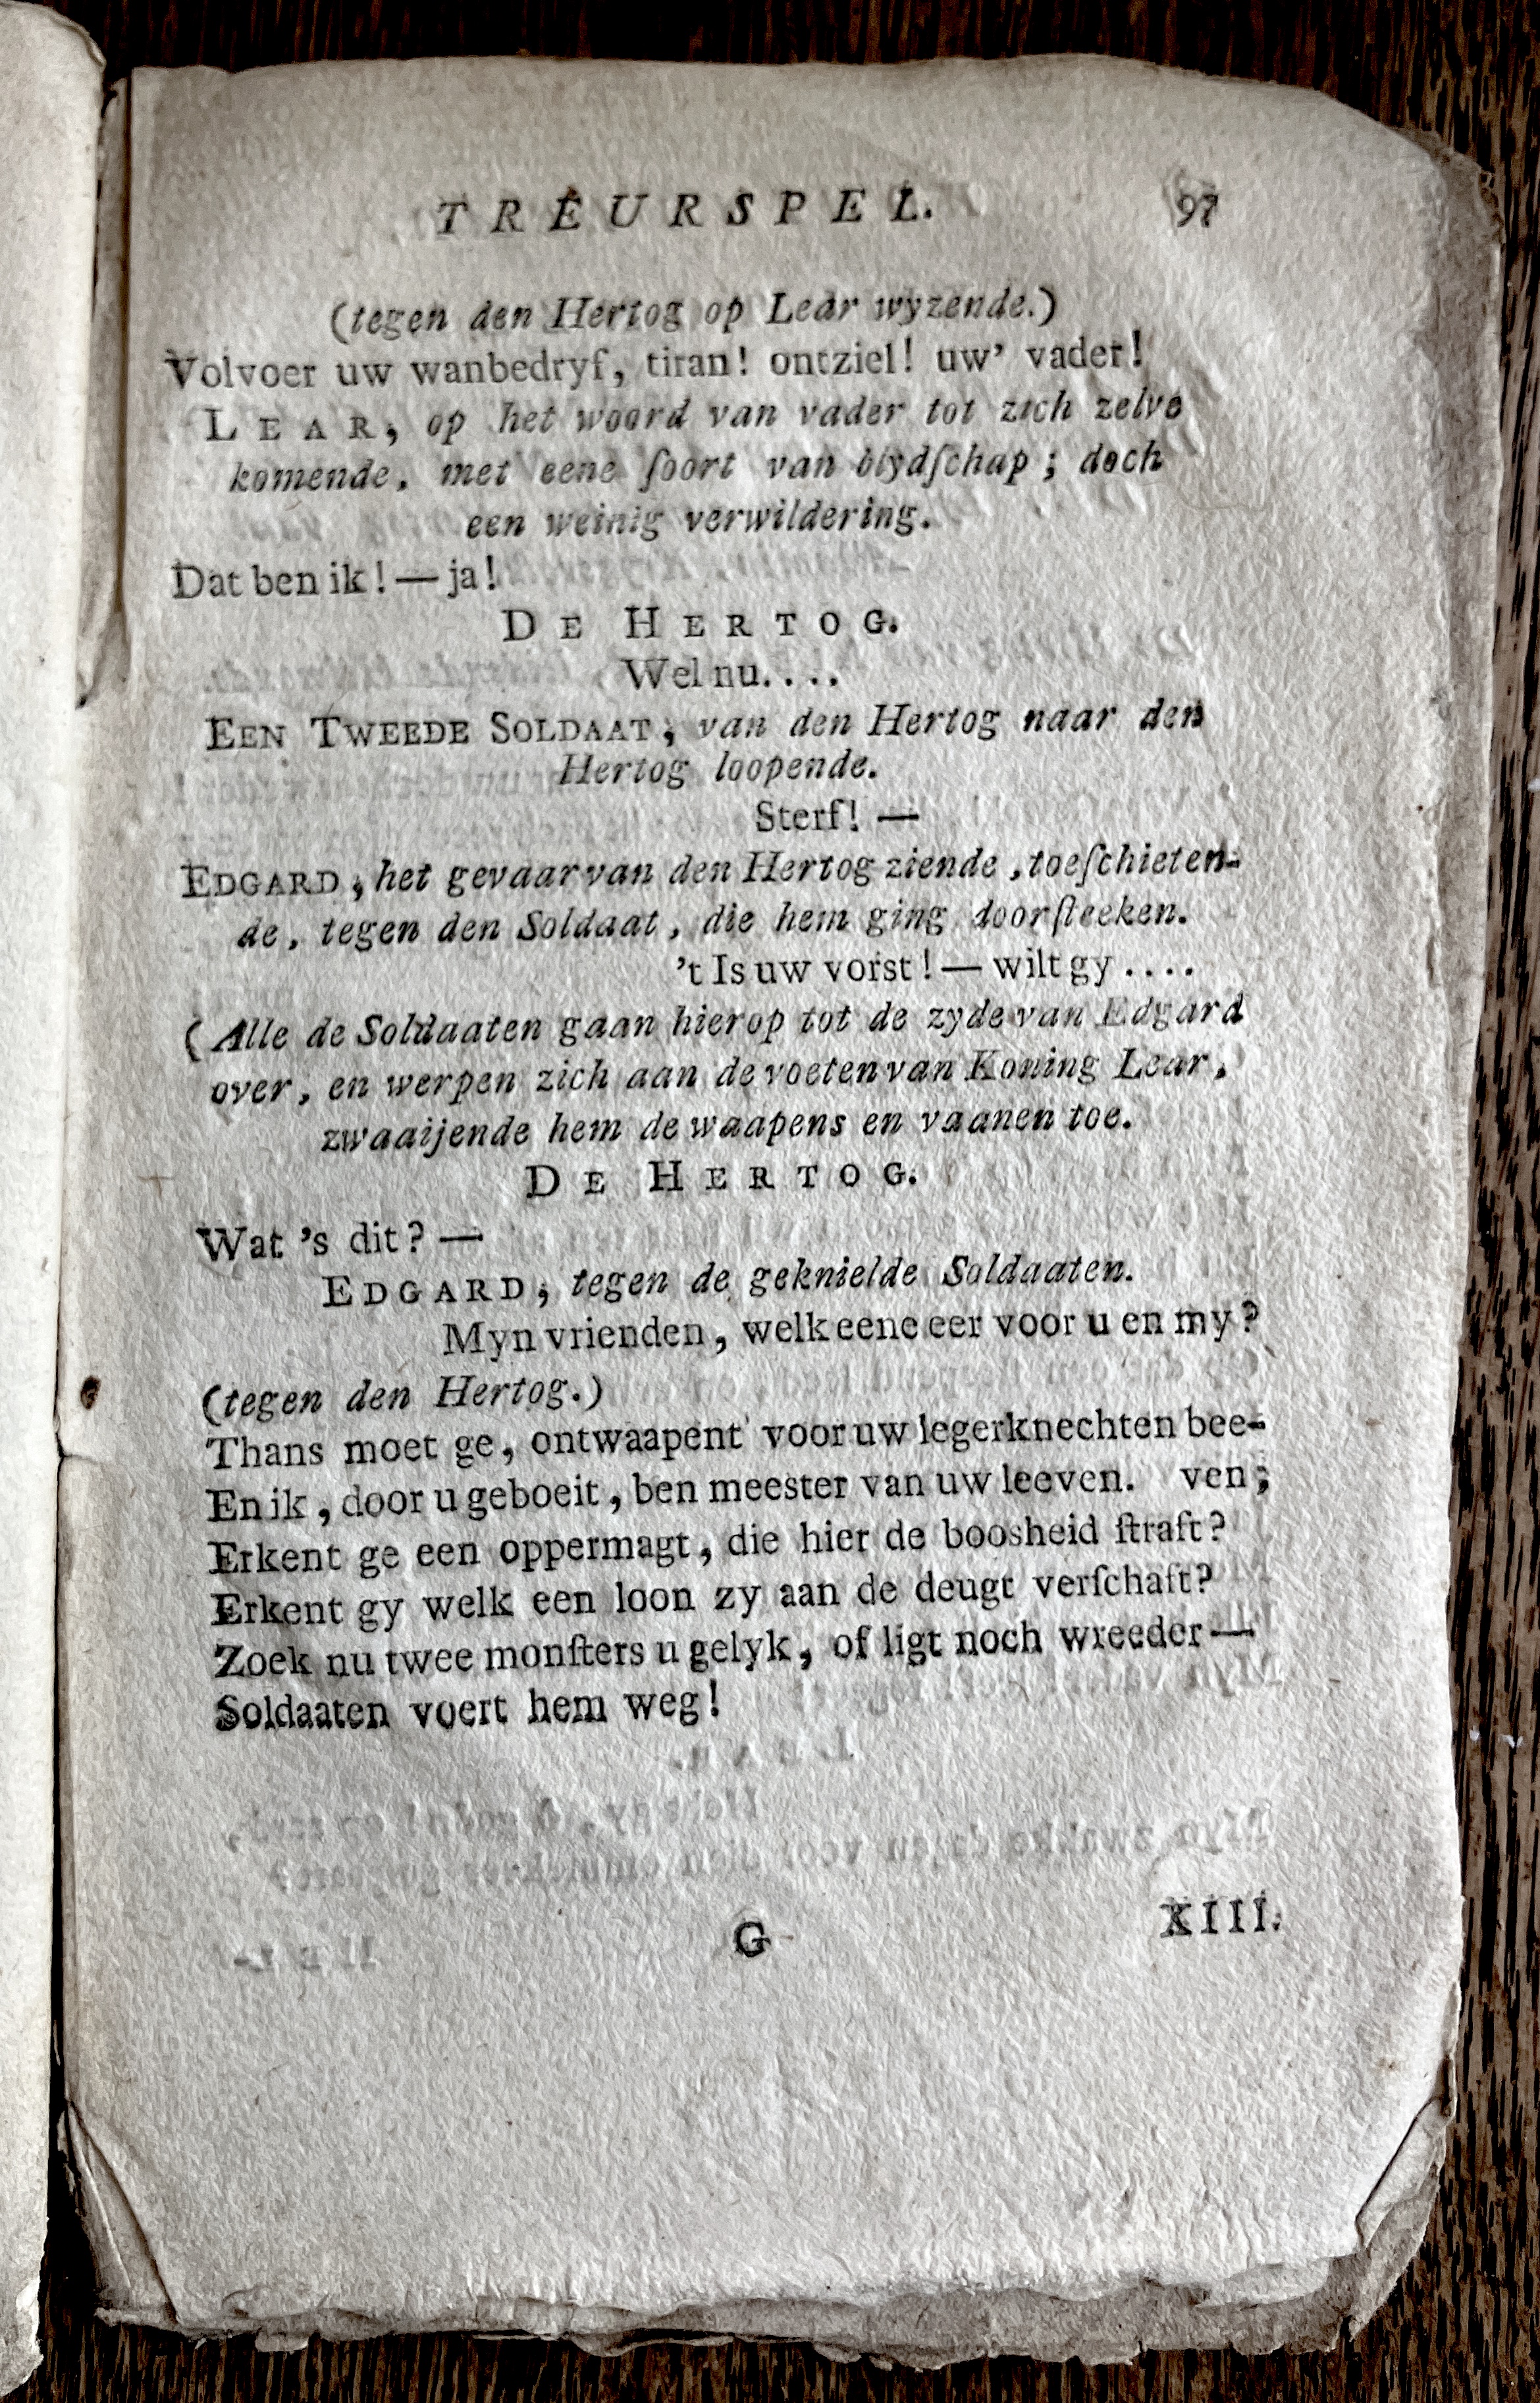 TREURSPEL. 97
(tegen den Hertog op Lear wyzende.)
Volvoer uw wanbedryf, tiran! ontziel! uw' vader!
LEAR, op het woord van vader tot zich zelve
komende, met eene ſoort van blydſchap; doch
een weinig verwildering.
Dat ben ik! — ja!
DE HERTOG.
Wel nu....
EEN TWEEDE SOLDAAT, van den Hertog naar den
Hertog loopende.
Sterf! —
EDGARD, het gevaar van den Hertog ziende, toeſchieten-
de, tegen den Soldaat, die hem ging doorſteeken.
't Is uw vorst! — wilt gy....
(Alle de Soldaaten gaan hierop tot de zyde van Edgard
over, en werpen zich aan de voeten van Koning Lear,
zwaaijende hem de waapens en vaanen toe.
DE HERTOG.
Wat 's dit? —
EDGARD, tegen de geknielde Soldaaten.
Myn vrienden, welk eene eer voor u en my?
(tegen den Hertog.)
Thans moet ge, ontwaapent voor uw legerknechten bee-
En ik, door u geboeit, ben meester van uw leeven. ven;
Erkent ge een oppermagt, die hier de boosheid ſtraft?
Erkent gy welk een loon zy aan de deugt verſchaft?
Zoek nu twee monſters u gelyk, of ligt noch wreeder —
Soldaaten voert hem weg!
G XIII.